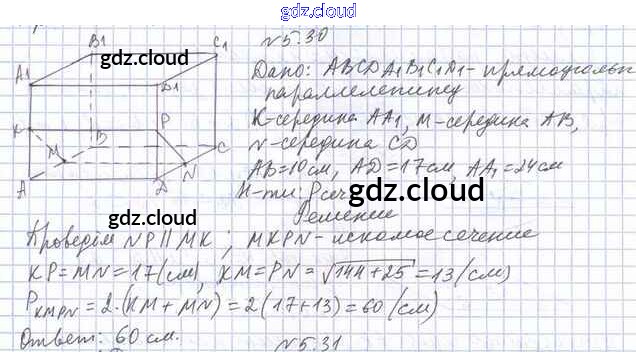 gdz.cloud
№5.30
Дано: ABCDA1B1C1D1 - прямоугольн
параллелепипед
K-середина AA1, M-середина AB,
N-середина CD
AB=10см, AD=17см, AA1=24см
Н-ти: Pсеч gdz.cloud
Решение
Проведём NP || MK; MKPN - искомое сечение
KP=MN=17(см), KM=PN=√144+25=13(см)
PKMPN=2·(KM+MN)=2(17+13)=60(см)
Ответ: 60 см.
№5.31
B1
gdz.cloud
C1
A1
D1
K
P
B
M
C
A
D
N
gdz.cloud